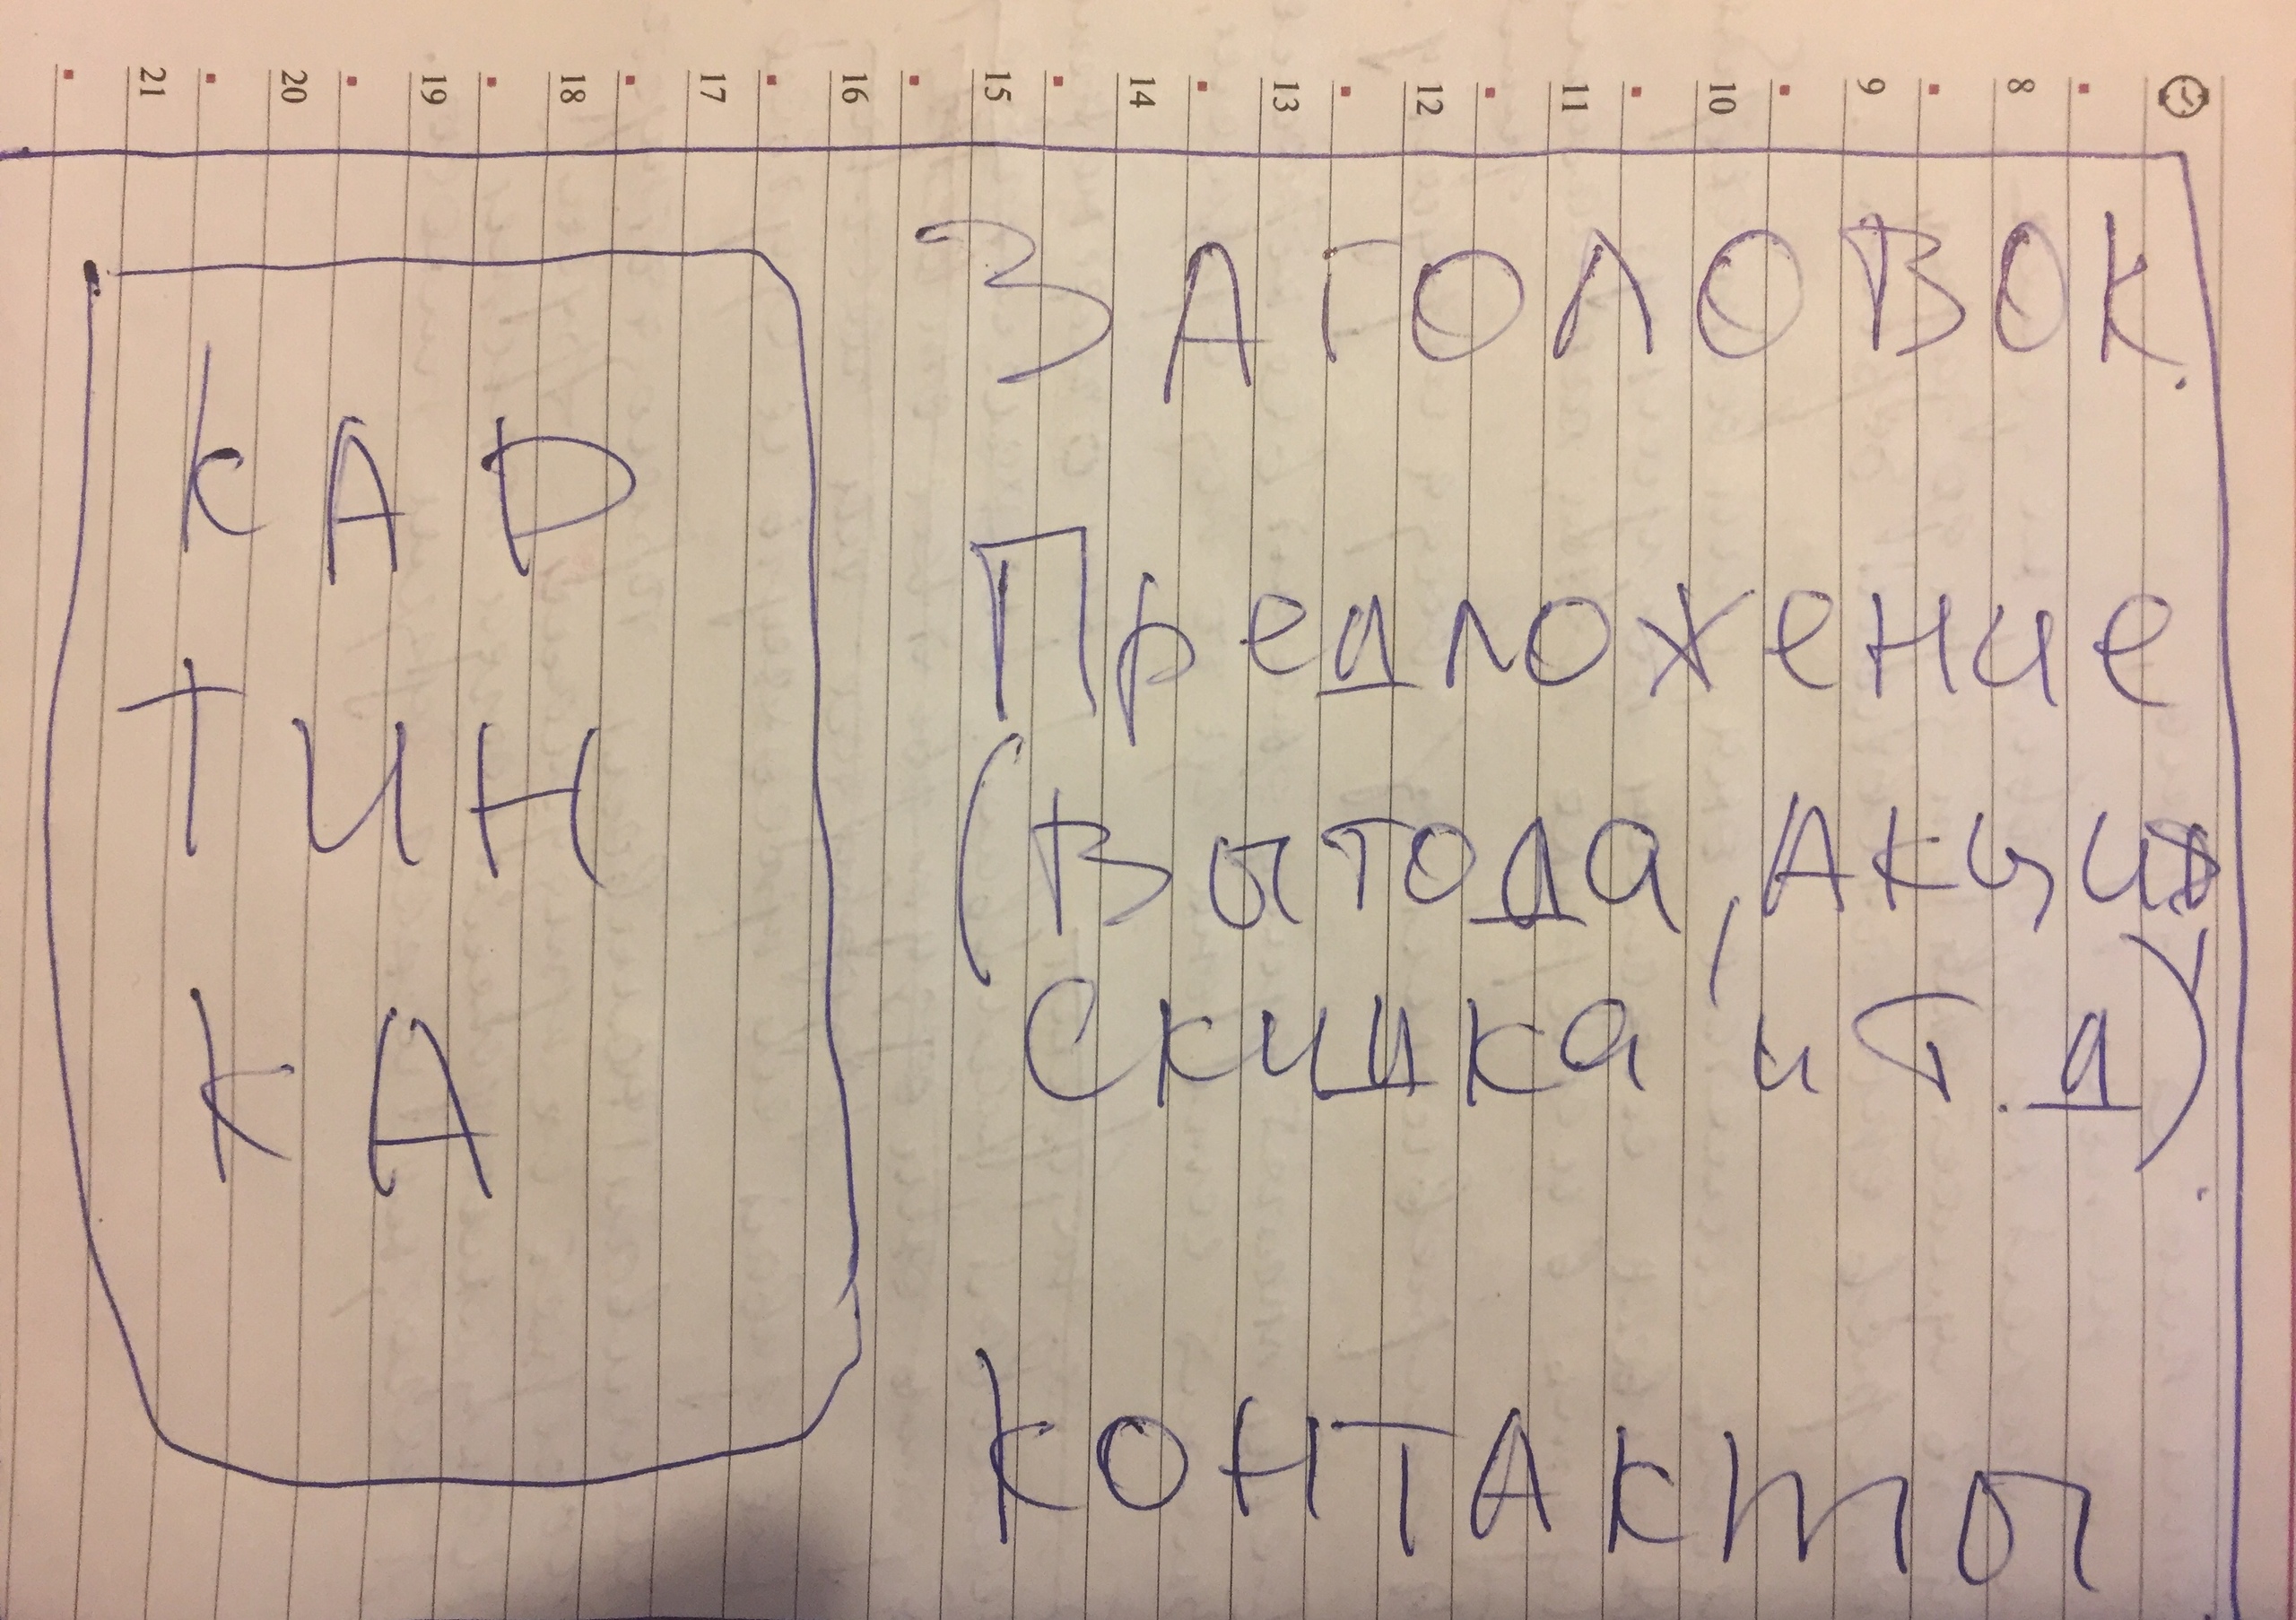 21 20 19 18 17 16 15 14 13 12 11 10 9 8
ЗАГОЛОВОК.
КАР
ТИН
КА
Предложение
(Выгода, Акция
Скидка и т.д)
КОНТАКТЫ